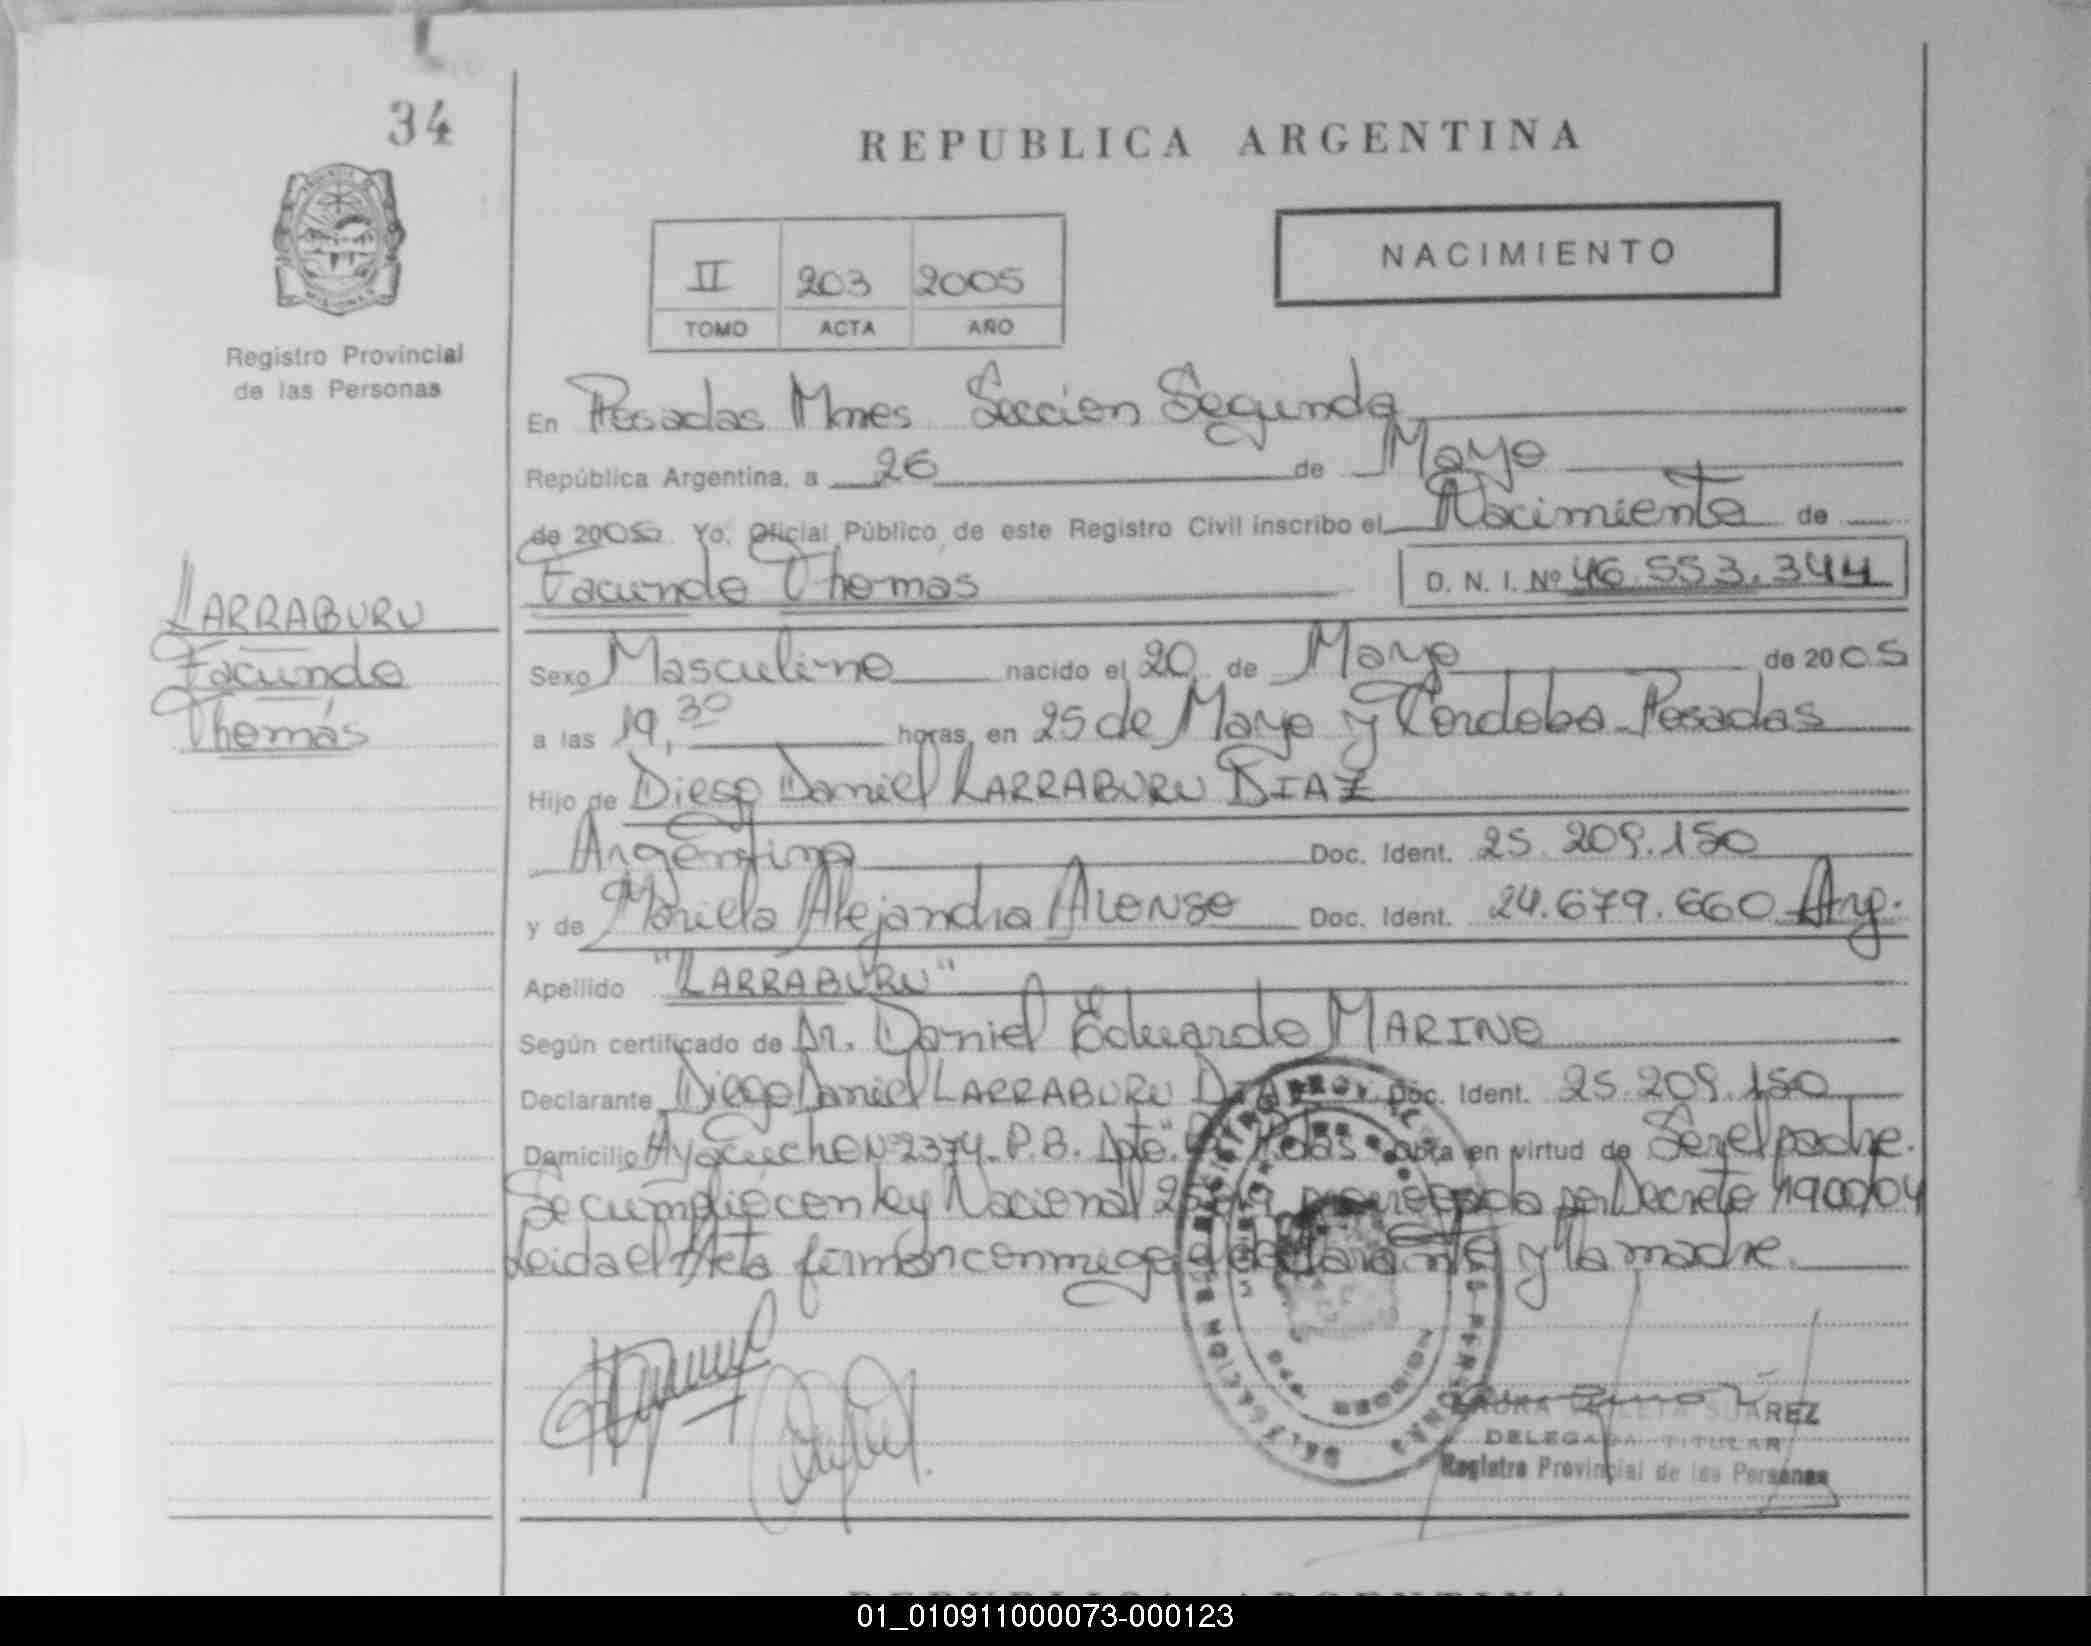 34
REPUBLICA ARGENTINA
NACIMIENTO
II 203 2005
TOMO ACTA AÑO
Registro Provincial
de las Personas
En Posadas Mnes. Sección Segunda
República Argentina, a 26 de Mayo
de 2005. Yo, Oficial Público de este Registro Civil inscribo el Nacimiento de
Facundo Thomas D. N. I. Nº 46.553.344
LARRABURU
Facundo
Thomás
Sexo Masculino nacido el 20 de Mayo de 2005
a las 19,30 horas, en 25 de Mayo y Córdoba Posadas
Hijo de Diego Daniel LARRABURU DIAZ
Argentino Doc. Ident. 25.209.150
y de Mariela Alejandra ALONSO Doc. Ident. 24.679.660 Arg.
Apellido "LARRABURU"
Según certificado de Dr. Daniel Eduardo MARINO
Declarante Diego Daniel LARRABURU DIAZ Doc. Ident. 25.209.150
Domicilio Ayacucho Nº 2374. P.B. Dpto. Pdas en virtud de Ser el padre.
Se cumplió con ley Nacional por Decreto 1900/04
Leida el Acta firman conmigo el declarante y la madre.
SUAREZ
DELEGADA TITULAR
Registro Provincial de las Personas
REPUBLICA ARGENTINA
01_010911000073-000123